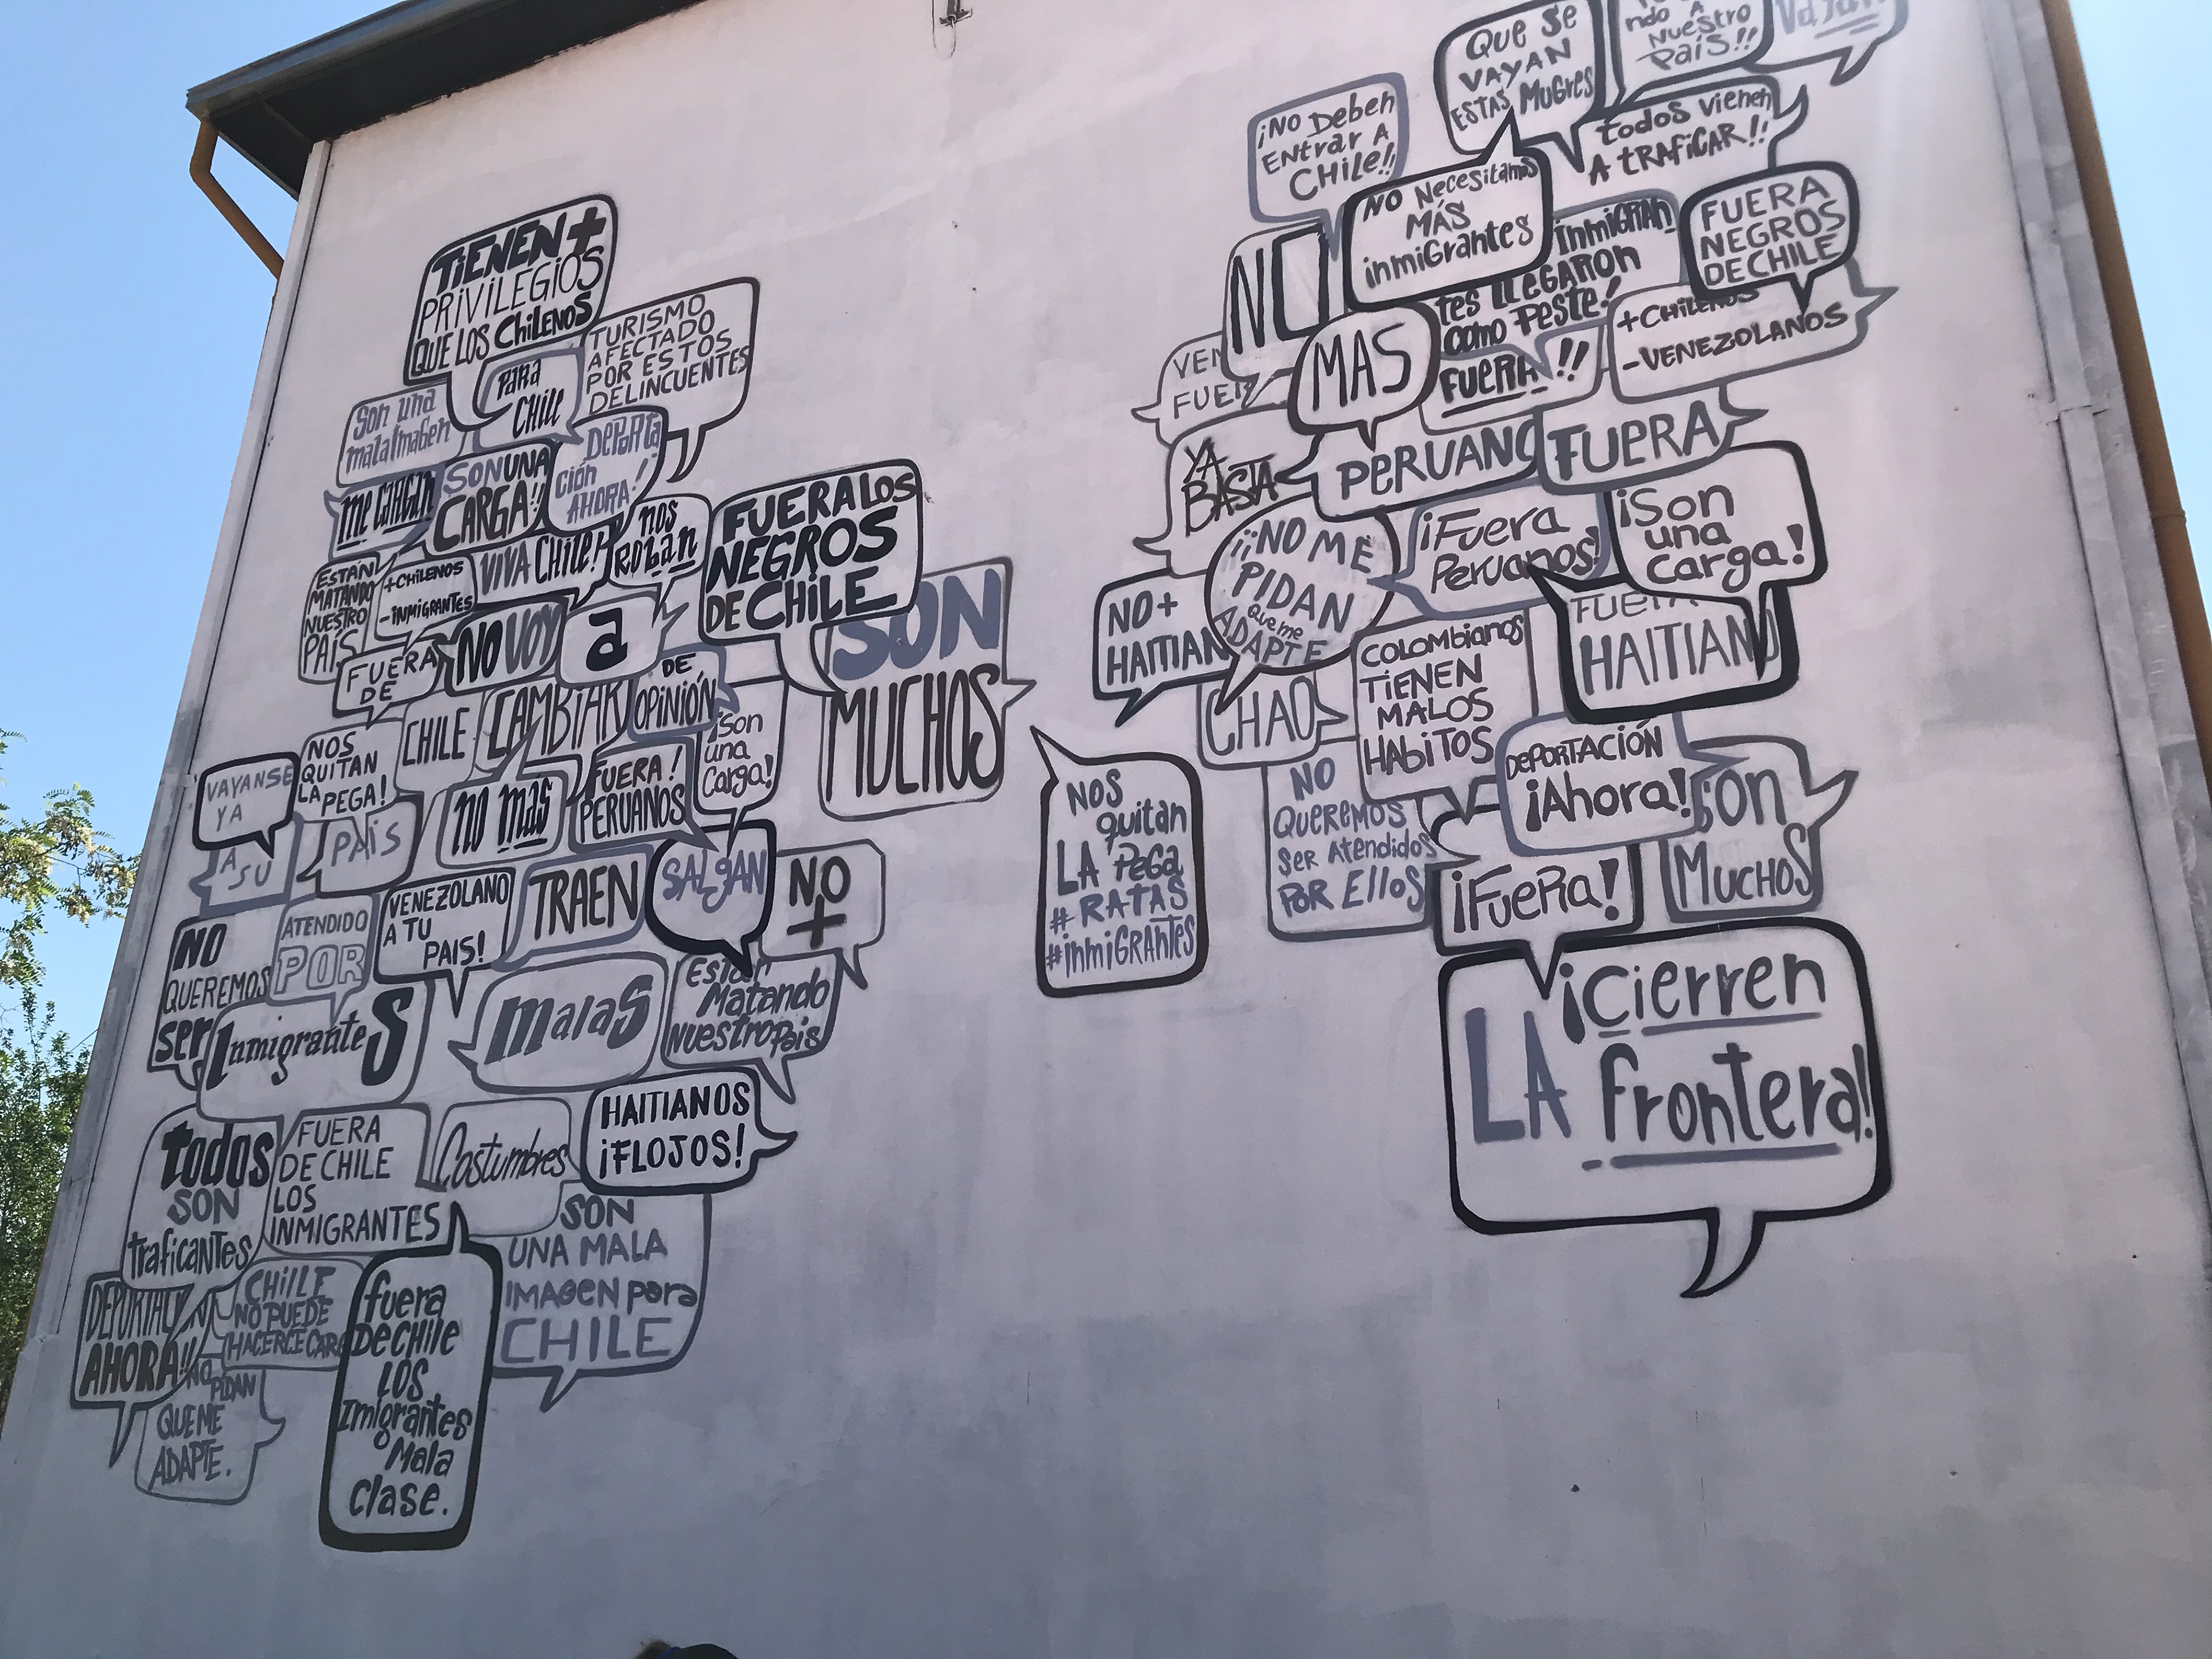 TiENEN +
PRiViLEGiOS
QUE LOS ChiLENOS
PARA
CHILE
TURISMO
AFECTADO
POR ESTOS
DELINCUENTES
Son una
mala Imagen
me CARGAN
SON UNA
CARGA!!
DePORTA
ción
AHORA!
VIVA CHiLE!
nos
ROban
FUERA LOS
NEGROS
DE CHiLE
SON
MUCHOS
ESTAN
MATANDO
NUESTRO
PAÍS
+CHILENOS
-INMIGRANTES
FUERA
DE
CHILE
NO VOY
a
CAMBiAR
DE
OPINIÓN
¡Son
una
Carga!
VAYANSE
YA
A
SU
PAÍS
NOS
QUITAN
LA PEGA!
no mas
FUERA!
PERUANOS
SALgAN
NO
+
NO
QUEREMOS
Ser
ATENDIDO
POR
InmigranteS
VENEZOLANO
A TU
PAIS!
TRAEN
malaS
Costumbres
Matando
Nuestro Pais
HAITIANOS
¡FLOJOS!
todos
SON
traficantes
FUERA
DE CHILE
LOS
INMIGRANTES
SON
UNA MALA
IMAGEN para
CHILE
AHORA!!
CHILLE
NO PUEDE
HACERCE
PIDAN
QUE ME
ADAPTE.
fuera
De CHile
LOS
Imigrantes
Mala
Clase.
Que Se
VAYAN
ESTAS MUGres
ndo A
Nuestro
País!!
¡NO Deben
Entrar A
CHile!!
todos vienen
A tRAFiCAR!!
NO Necesitamos
MÁS
inmigrantes
FUERA
NEGROS
DE CHILE
InmiGRAn
tes LLEGARON
como Peste!
FUERA!!
+CHILENOS
-VENEZOLANOS
NO
MAS
PERUANO
FUERA
YA
BASTA
¡¡NO ME
PIDAN
que me
ADAPTE
¡Fuera
Peruanos!
¡Son
una
Carga!
NO+
HAITIAN
HAITIANO
CHAO
COLOMbianos
TiENEN
MALOS
HAbiTOS
NO
QUeREMOS
SER Atendidos
POR EllOS
DePORTACIÓN
¡Ahora!
Son
MUCHOS
¡FUeRa!
NOS
quitan
LA Pega
#RATAS
#inmiGRAntes
¡Cierren
LA frontera!